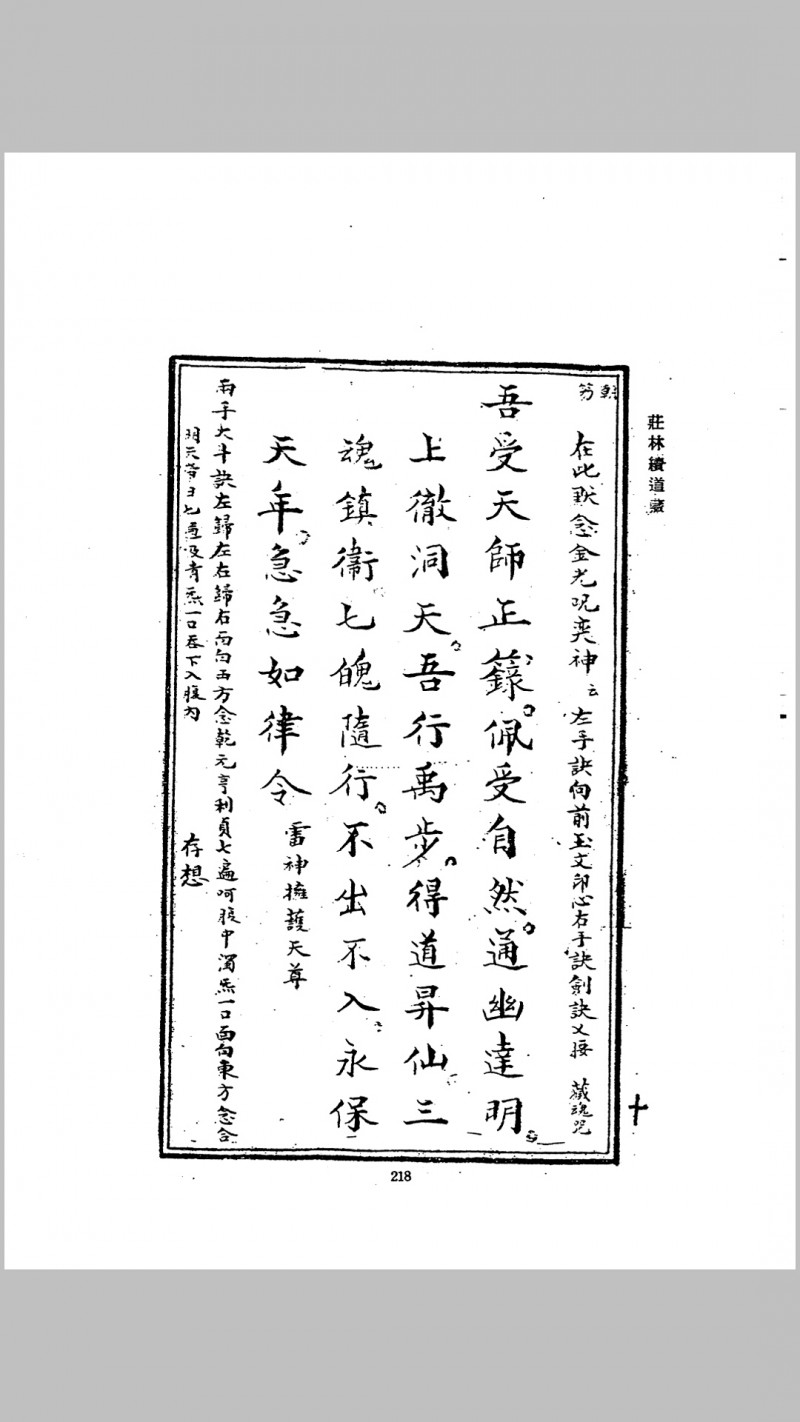 莊林續道藏
在此默念金光咒奕神云 左手訣向前玉文印心右手訣劍訣又接 藏魂咒
吾受天師正籙。佩受自然。通幽達明。
上徹洞天。吾行禹步。得道昇仙。三
魂鎮衞。七魄隨行。不出不入。永保
天年。急急如律令 雷神擁護天尊
兩手大斗訣左歸左右歸右面向西方念乾元亨利貞七遍呵腹中濁炁一口面向東方念合
明天帝日七遍吸青炁一口吞下入腹內 存想
十
218